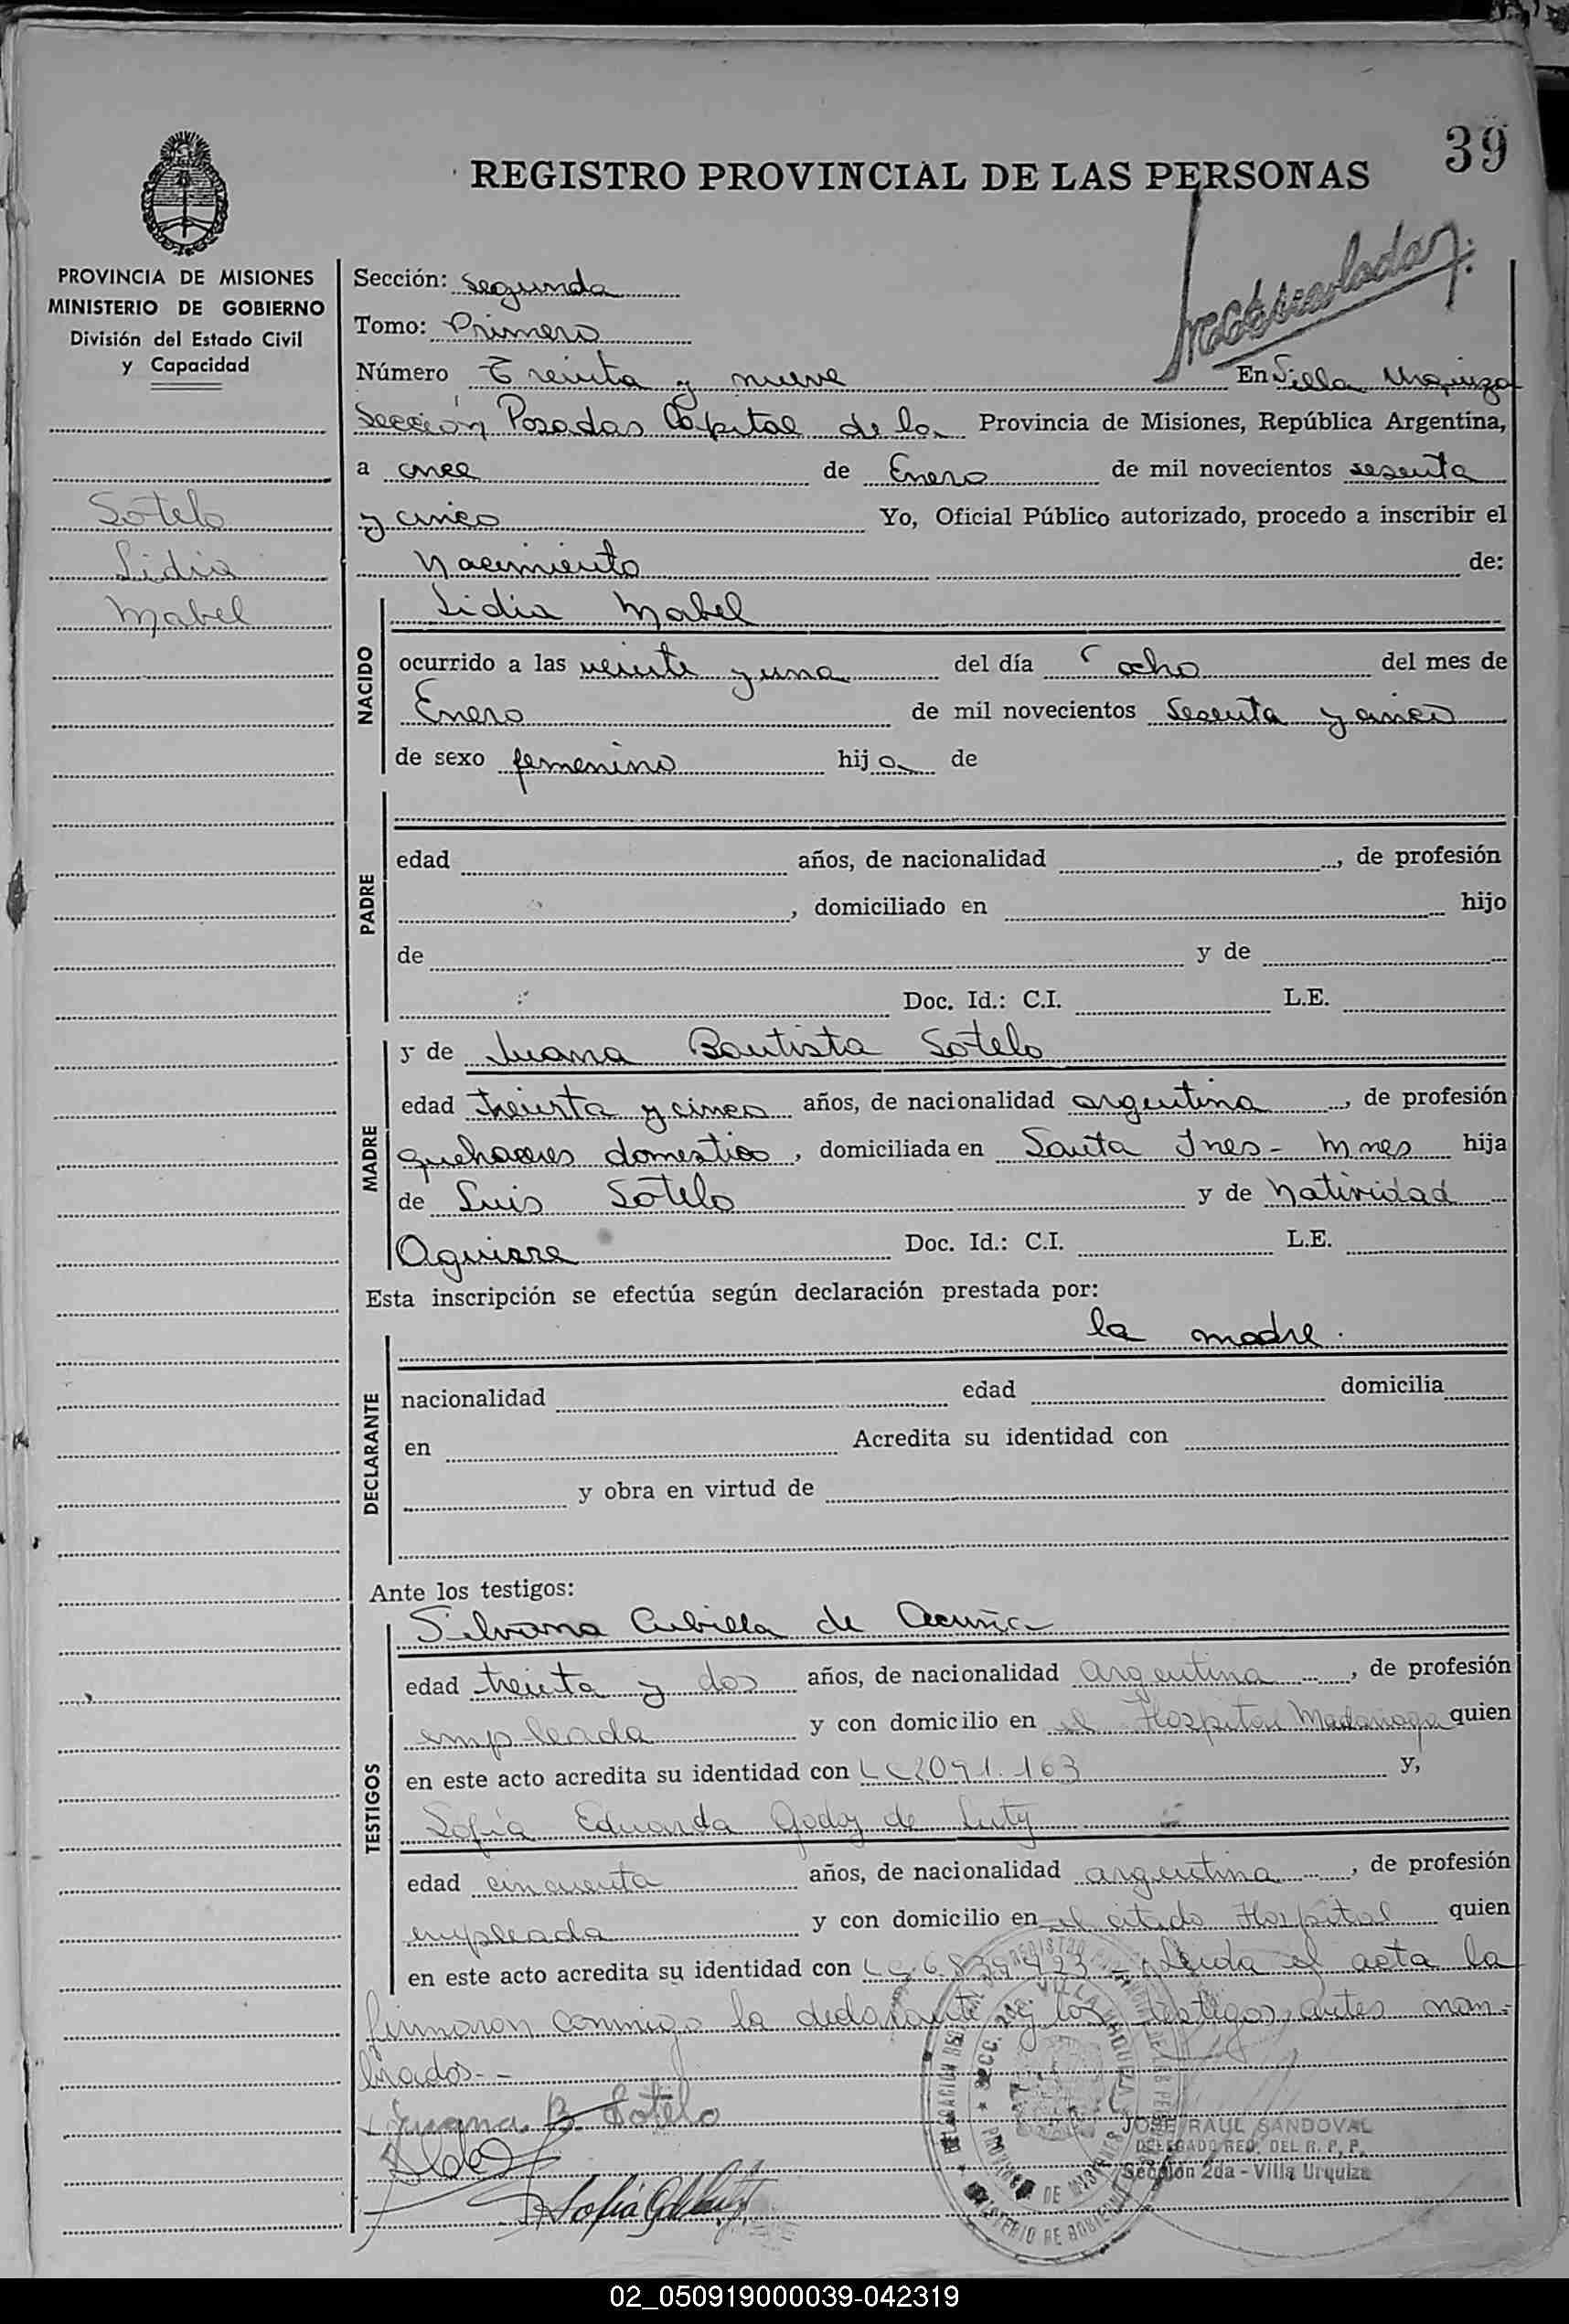 39
REGISTRO PROVINCIAL DE LAS PERSONAS
PROVINCIA DE MISIONES
MINISTERIO DE GOBIERNO
División del Estado Civil
y Capacidad
Sotelo
Lidia
Mabel
Sección: segunda
Tomo: Primero
Número Treinta y nueve En Villa Urquiza
Sección Posadas Capital de la Provincia de Misiones, República Argentina,
a once de Enero de mil novecientos sesenta
y cinco Yo, Oficial Público autorizado, procedo a inscribir el
Nacimiento de:
NACIDO
Lidia Mabel
ocurrido a las veinte y una del día ocho del mes de
Enero de mil novecientos Sesenta y cinco
de sexo femenino hija de
PADRE
edad años, de nacionalidad , de profesión
, domiciliado en hijo
de y de
Doc. Id.: C.I. L.E.
MADRE
y de Juana Bautista Sotelo
edad treinta y cinco años, de nacionalidad argentina , de profesión
quehaceres domesticos , domiciliada en Santa Ines - Mnes hija
de Luis Sotelo y de Natividad
Aguirre Doc. Id.: C.I. L.E.
Esta inscripción se efectúa según declaración prestada por:
la madre.
DECLARANTE
nacionalidad edad domicilia
en Acredita su identidad con
y obra en virtud de
Ante los testigos:
TESTIGOS
Silvana Cubilla de Acuña
edad treinta y dos años, de nacionalidad argentina , de profesión
empleada y con domicilio en el Hospital Madariaga quien
en este acto acredita su identidad con LC 2.091.163 y,
Sofía Eduarda Godoy de
edad cincuenta años, de nacionalidad argentina , de profesión
empleada y con domicilio en el citado Hospital quien
en este acto acredita su identidad con LC 6.839.423 - Leida el acta la
firmaron conmigo la declarante y los testigos antes nom-
brados.-
Juana B. Sotelo
JOSE RAUL SANDOVAL
DELEGADO REG. DEL R. P. P.
Sección 2da - Villa Urquiza
02_050919000039-042319